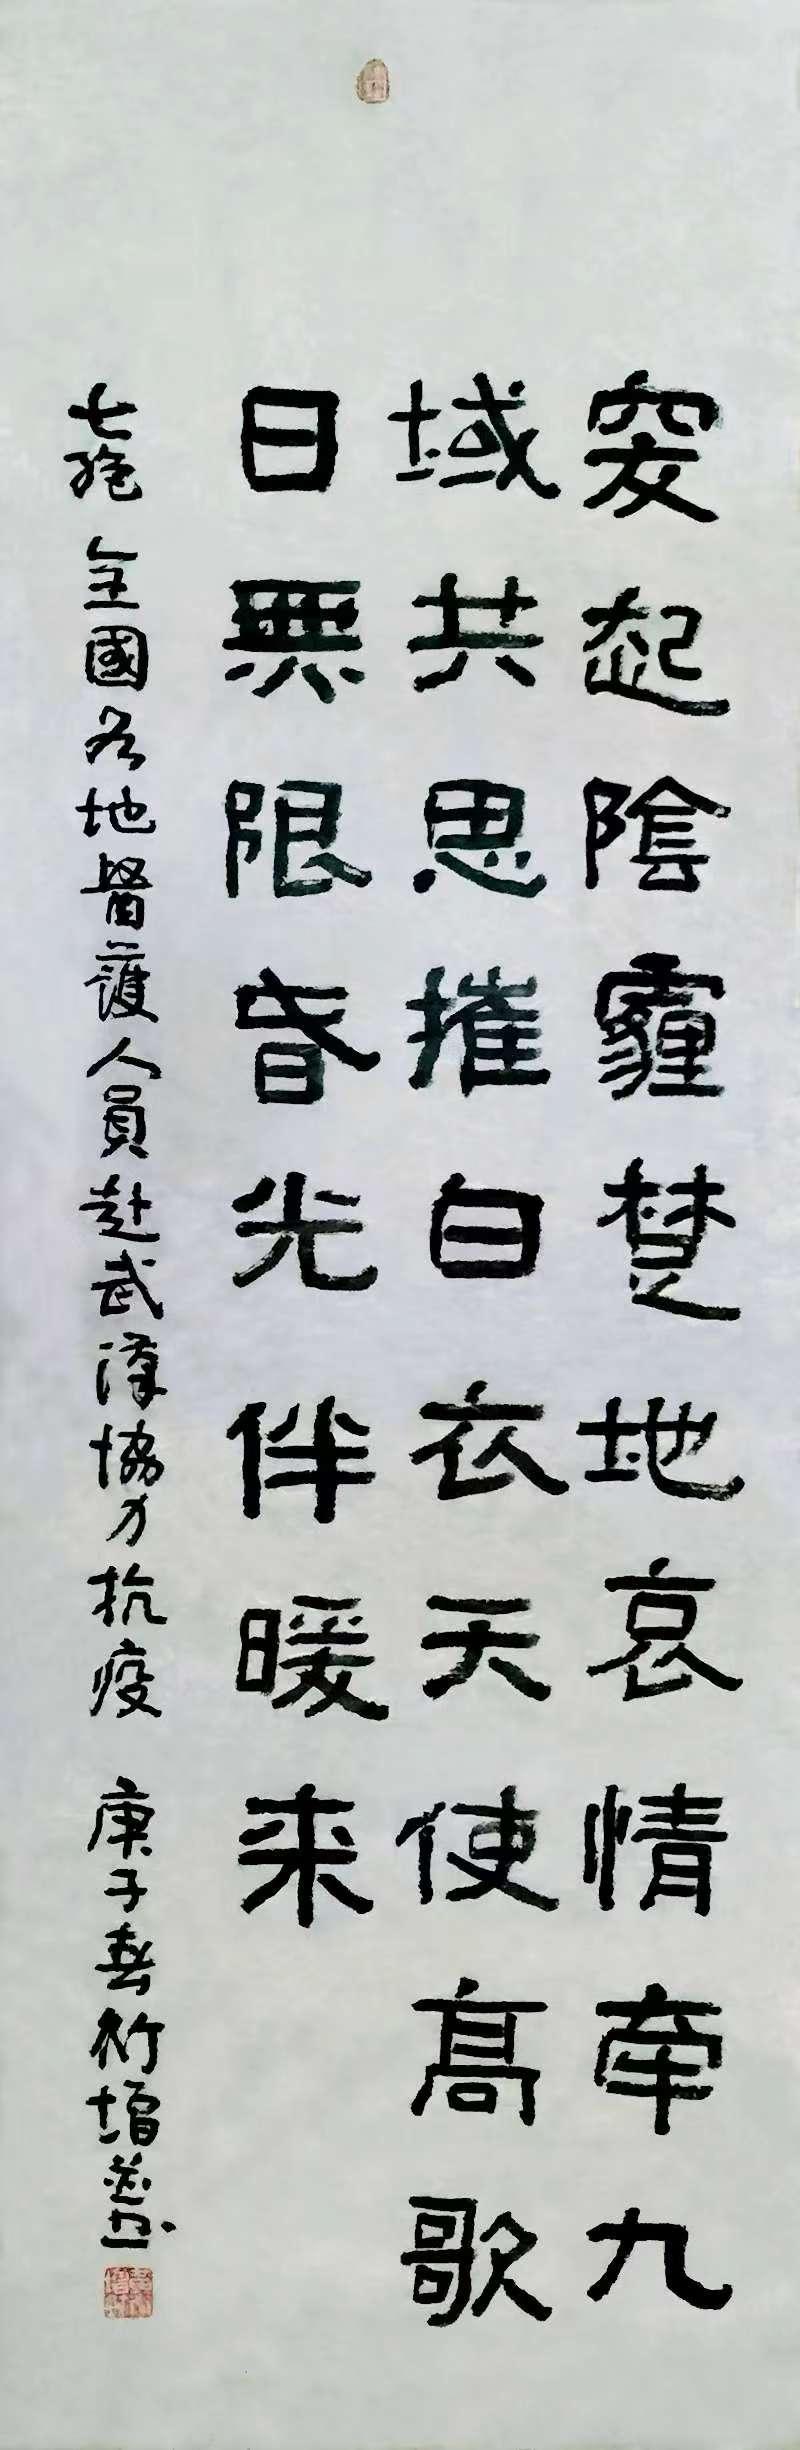 突起陰霾楚地哀情牽九
域共思摧白衣天使高歌
日無限春光伴暖来
七绝 全國各地醫護人員赴武漢協力抗疫 庚子春竹增并书